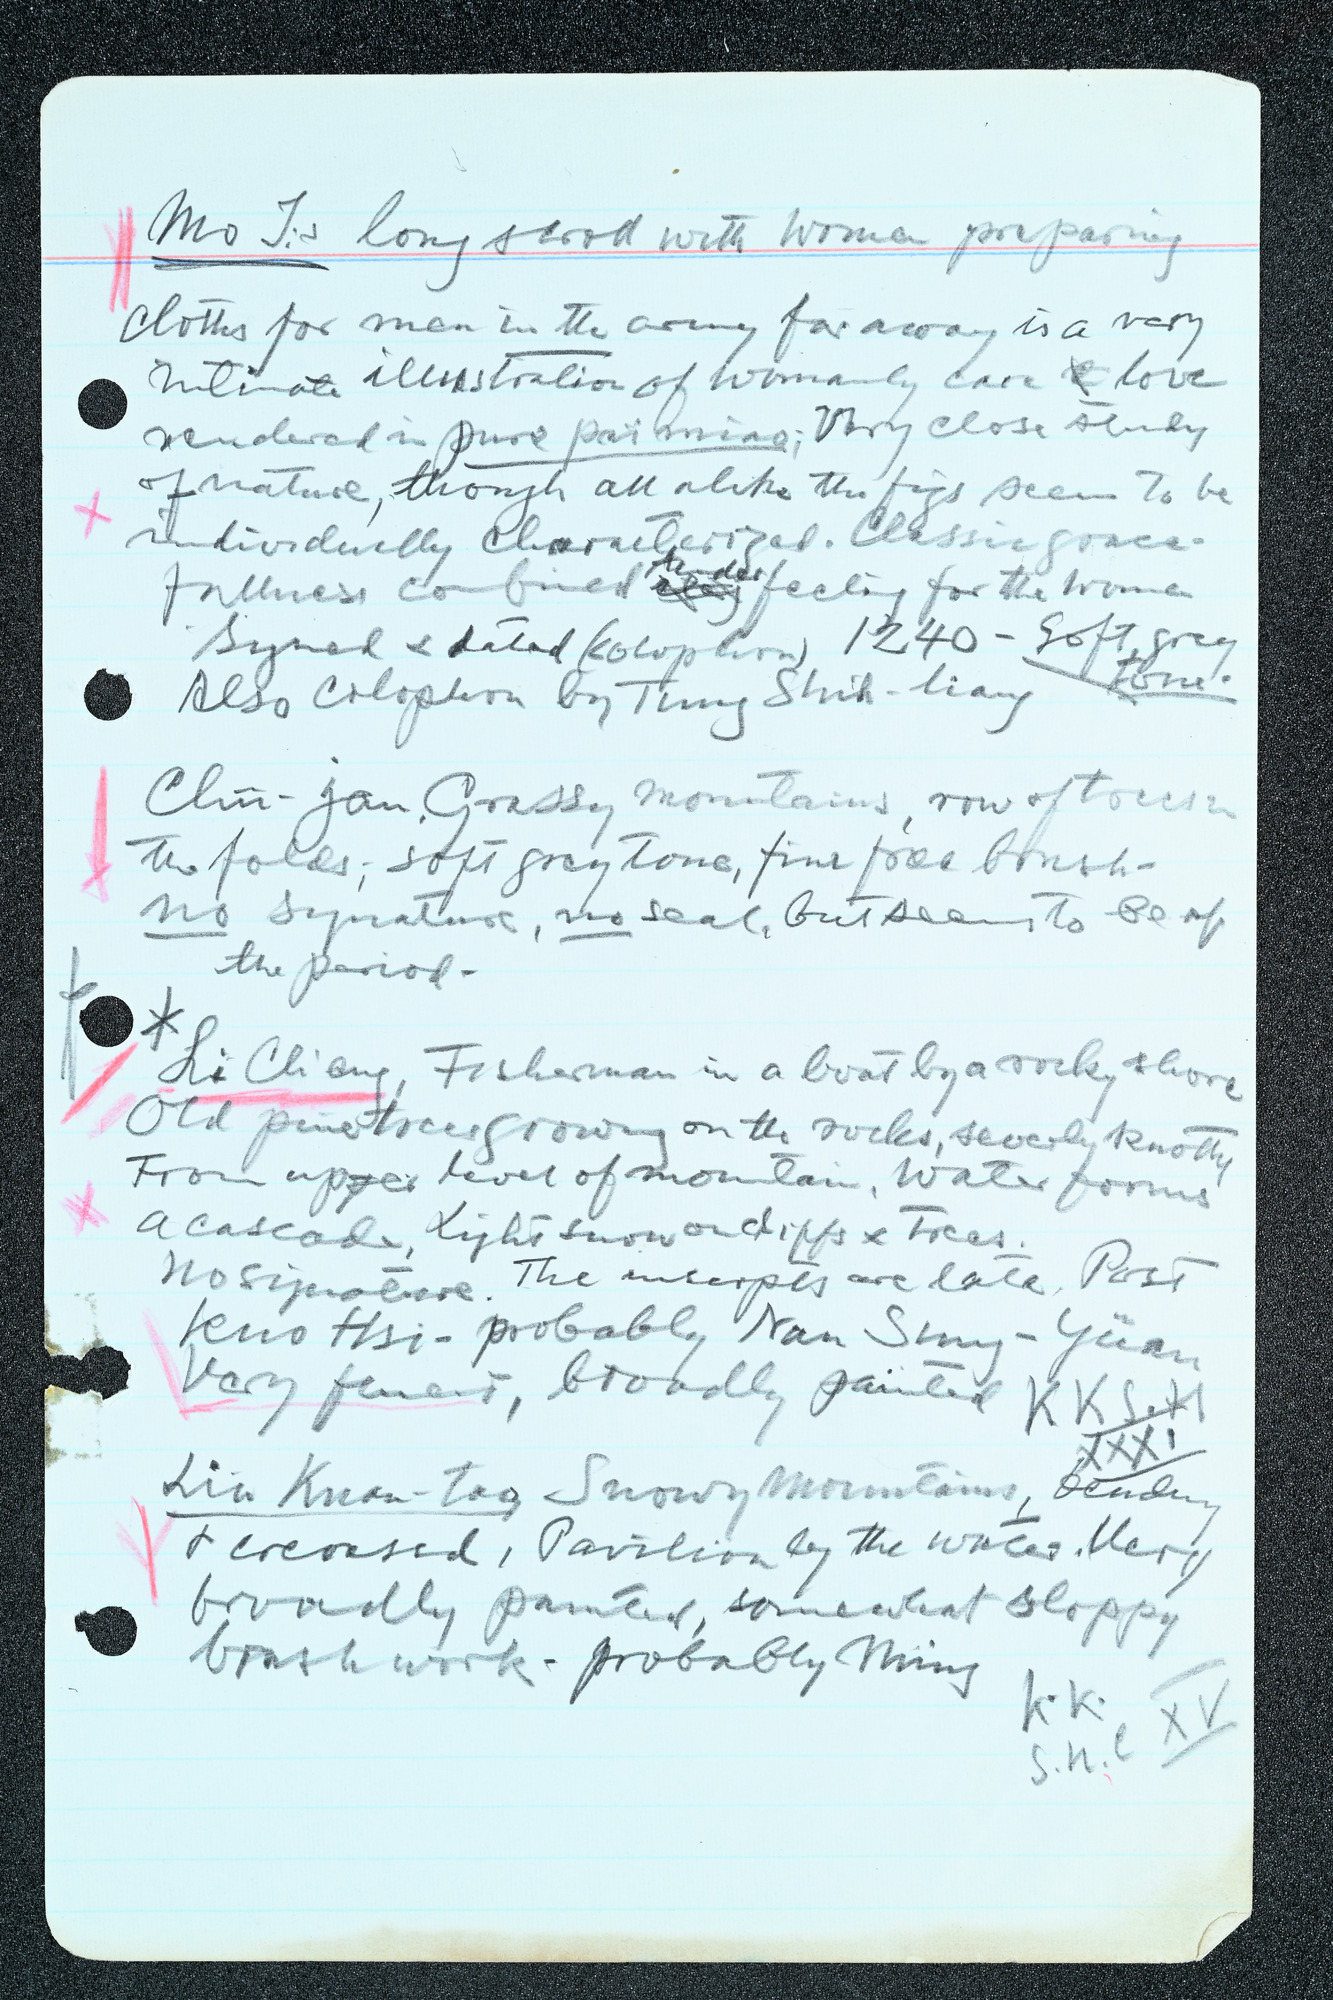 Mo I:s long scroll with women preparing
cloths for men in the army far away is a very
intimate illustration of womanly care & love
rendered in pure pai miao; Very close study
of nature, though all alike the figs seem to be
individually characterized. Classic grace-
fullness combined tender feeling for the women
Signed & dated (colophon) 1240 - Soft grey
tone.
Also colophon by Tung Shih-liang
Chü-jan. Grassy mountains, row of trees in
the folds; soft grey tone, fine free brush-
no signature, no seal, but seems to be of
the period-
*
Li Chieng, Fisherman in a boat by a rocky shore
Old pinetrees growing on the rocks, severly knotty,
From upper level of mountain, water forms
a cascade, Light snow on cliffs & trees.
No signature. The inscrpts are late. Post
Kuo Hsi- probably Nan Sung - Yüan
Very fine, broadly painted
KKS. XI
XXXI
Liu Kuan-tao, Snowy Mountains,
& creviced, Pavilion by the water. Very
broadly painted, somewhat sloppy
brushwork- probably Ming
K.K.
S.H.C XV